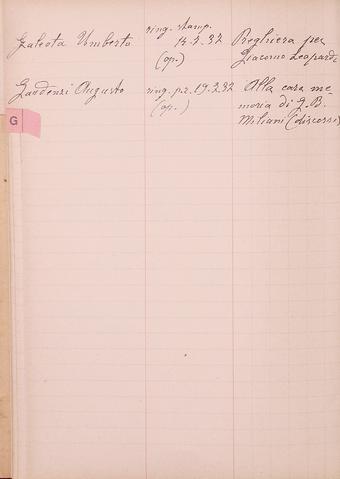 ring. stamp.
Galeota Umberto 14.2.32 Preghiera per
(op.) Giacomo Leopardi
Gaudenzi Augusto ring. p.r. 19.2.32 Alla cara me-
(op.) moria di G. B.
Miliani (discorsi)
G